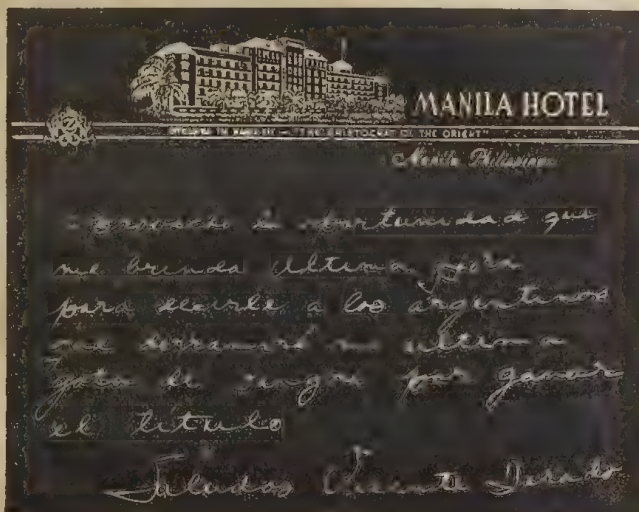 MANILA HOTEL
ARISTOCRAT OF THE ORIENT"
Manila Philippines
Aprovecho la oportunidad que
me brinda Ultima Hora
para decirle a los argentinos
que derramaré mi ultima
gota de sangre por ganar
el titulo
Saludos